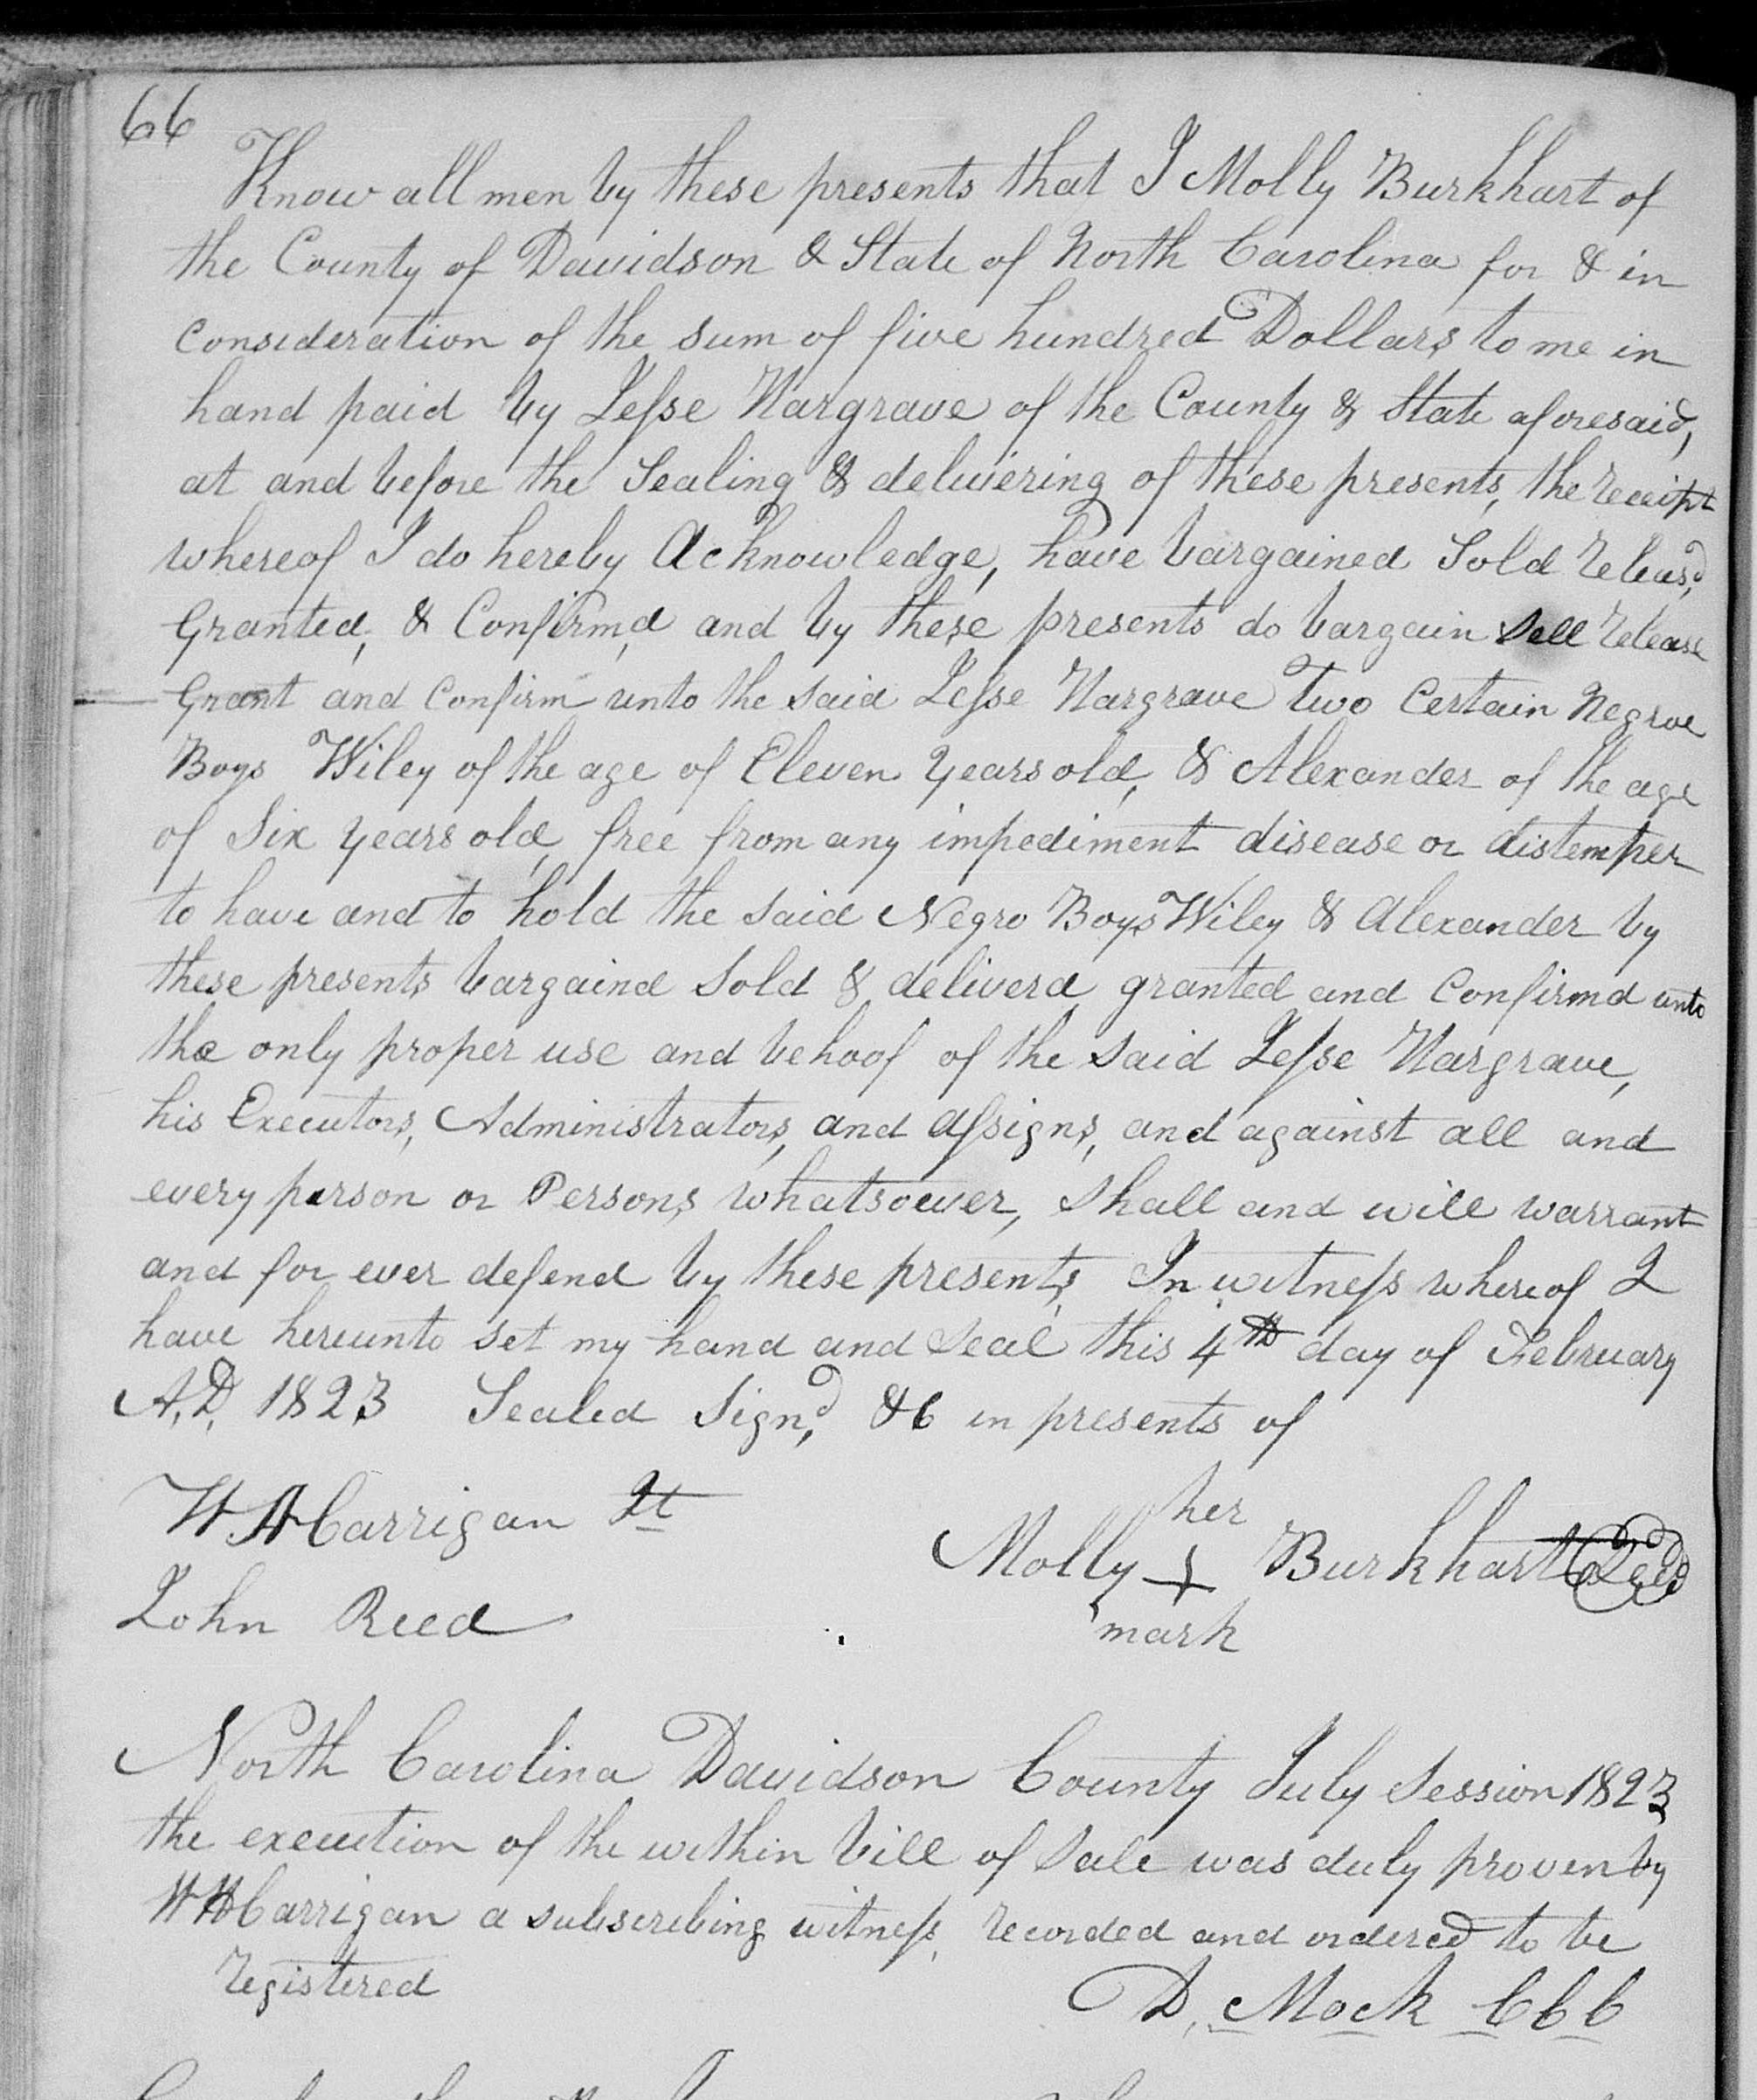 66
Know all men by these presents that I Molly Burkhart of
the County of Davidson & State of North Carolina for & in
Consideration of the sum of five hundred Dollars to me in
hand paid by Jesse Hargrave of the County & State aforesaid,
at and before the Sealing & delivering of these presents, the receipt
whereof I do hereby Acknowledge, have bargained Sold releasd,
Granted, & Confirmd, and by these presents do bargain Sell release
Grant and Confirm unto the said Jesse Hargrave Two Certain Negroe
Boys Wiley of the age of Eleven years old, & Alexander of the age
of Six years old, free from any impediment disease or distemper
to have and to hold the said Negro Boys Wiley & Alexander by
these presents bargaind Sold & deliverd granted and Confirmd unto
the only proper use and behoof of the said Jesse Hargrave,
his Executors, Administrators, and assigns, and against all and
every person or Persons whatsoever, shall and will warrant
and for ever defend by these presents, In witness whereof I
have hereunto set my hand and Seal this 4th day of February
A.D. 1823 Sealed Signd, &C in presents of
W H Carrigan Jt
her
Molly + Burkhart Seal
mark
John Reed
North Carolina Davidson County July Session 1823
the execution of the within bill of Sale was duly proven by
W H Carrigan a subscribing witness, recorded and ordered to be
registered
D, Mock CCC